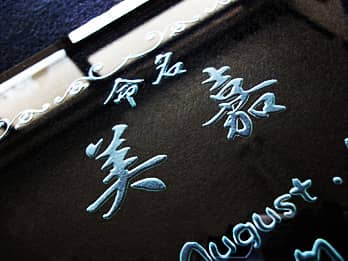 命名
美嘉
August